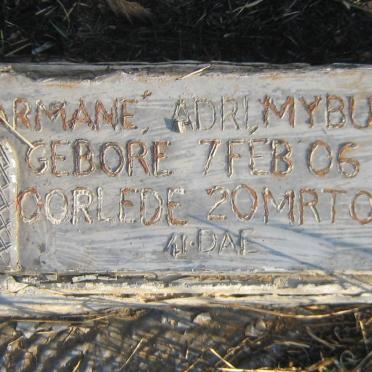 ARMANÉ, ADRI, MYBU
GEBORE 7 FEB 06
OORLEDE 20 MRT O
41 DAE